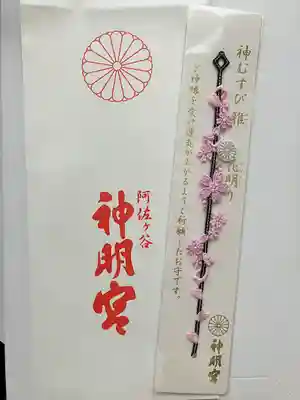 阿佐ヶ谷
神明宮
神むすび 雅
花明り
ご神縁を受け運気が上がるよう祈願したお守です。
神明宮